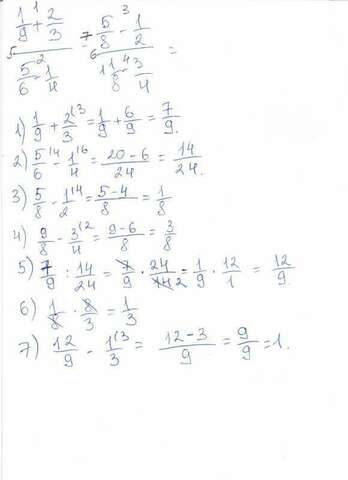 1/9 +¹ 2/3 5/8 -³ 1/2
5 — -⁷ 6 — =
5/6 -² 1/4 1 1/8 -⁴ 3/4
1) 1/9 + 2/3⁽³ = 1/9 + 6/9 = 7/9.
2) 5/6⁽⁴ - 1/4⁽⁶ = 20-6/24 = 14/24.
3) 5/8 - 1/2⁽⁴ = 5-4/8 = 1/8
4) 9/8 - 3/4⁽² = 9-6/8 = 3/8
5) 7/9 : 14/24 = 7/9 · 24/14 2 = 1/9 · 12/1 = 12/9
6) 1/8 · 8/3 = 1/3
7) 12/9 - 1/3⁽³ = 12-3/9 = 9/9 = 1.